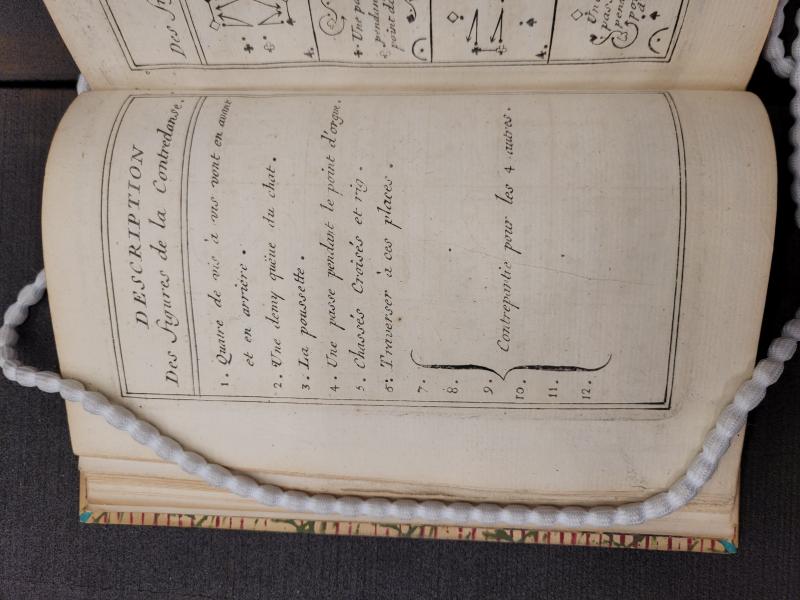 DESCRIPTION
Des figures de la Contredanse.
1. Quatre de vis à vis vont en avant
et en arrière.
2. Une demy queüe du chat.
3. La poussette.
4. Une passe pendant le point d'orgue.
5. Chassés Croisés et rig.
6. Traverser à ces places.
7.
8.
9.
Contrepartie pour les 4 autres.
10.
11.
12.